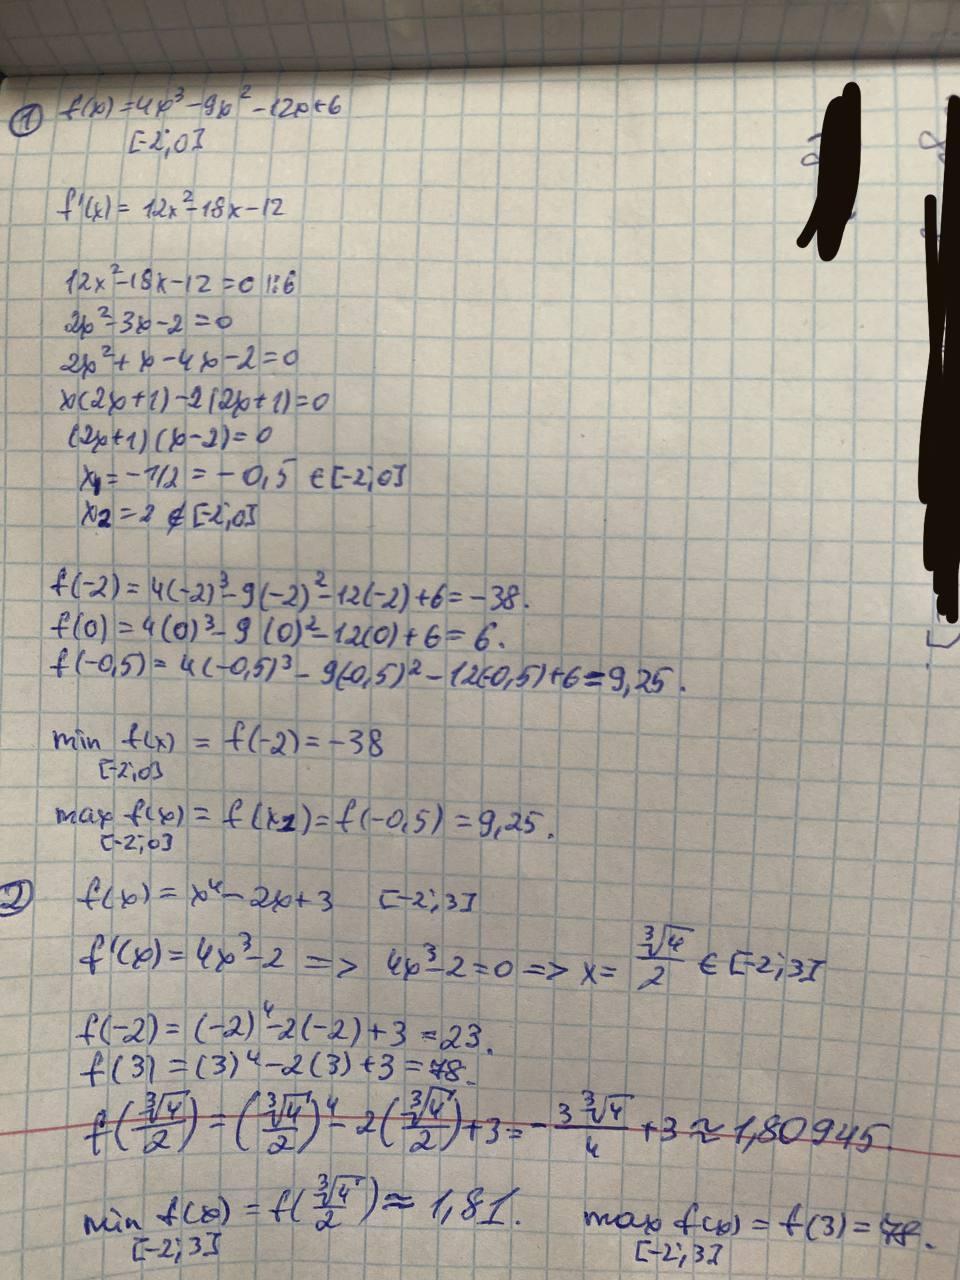 ① f(x) = 4x³ - 9x² - 12x + 6
[-2; 0]
f'(x) = 12x² - 18x - 12
12x² - 18x - 12 = 0 |:6
2x² - 3x - 2 = 0
2x² + x - 4x - 2 = 0
x(2x+1) - 2(2x+1) = 0
(2x+1)(x-2) = 0
x₁ = -1/2 = -0,5 ∈ [-2; 0]
x₂ = 2 ∉ [-2; 0]
f(-2) = 4(-2)³ - 9(-2)² - 12(-2) + 6 = -38.
f(0) = 4(0)³ - 9(0)² - 12(0) + 6 = 6.
f(-0,5) = 4(-0,5)³ - 9(-0,5)² - 12(-0,5) + 6 = 9,25.
min f(x) = f(-2) = -38
[-2; 0]
max f(x) = f(x₁) = f(-0,5) = 9,25.
[-2; 0]
② f(x) = x⁴ - 2x + 3 [-2; 3]
f'(x) = 4x³ - 2 => 4x³ - 2 = 0 => x = ∛4/2 ∈ [-2; 3]
f(-2) = (-2)⁴ - 2(-2) + 3 = 23.
f(3) = (3)⁴ - 2(3) + 3 = 78.
f(∛4/2) = (∛4/2)⁴ - 2(∛4/2) + 3 = -3∛4/4 + 3 ≈ 1,80945.
min f(x) = f(∛4/2) ≈ 1,81. max f(x) = f(3) = 78.
[-2; 3] [-2; 3]